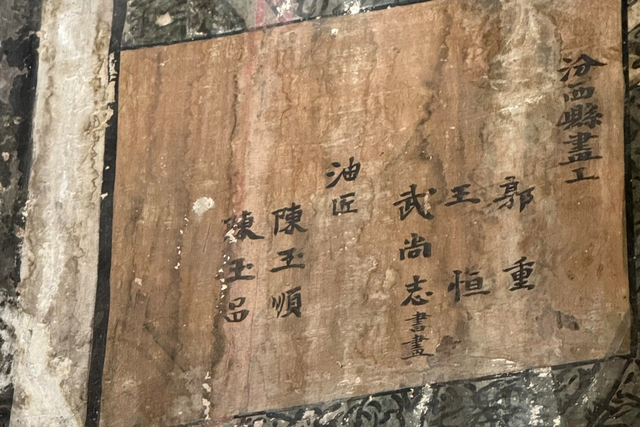 汾西縣畫工
郭重
王恒
武尚志書畫
油匠
陳玉順
陳玉呂